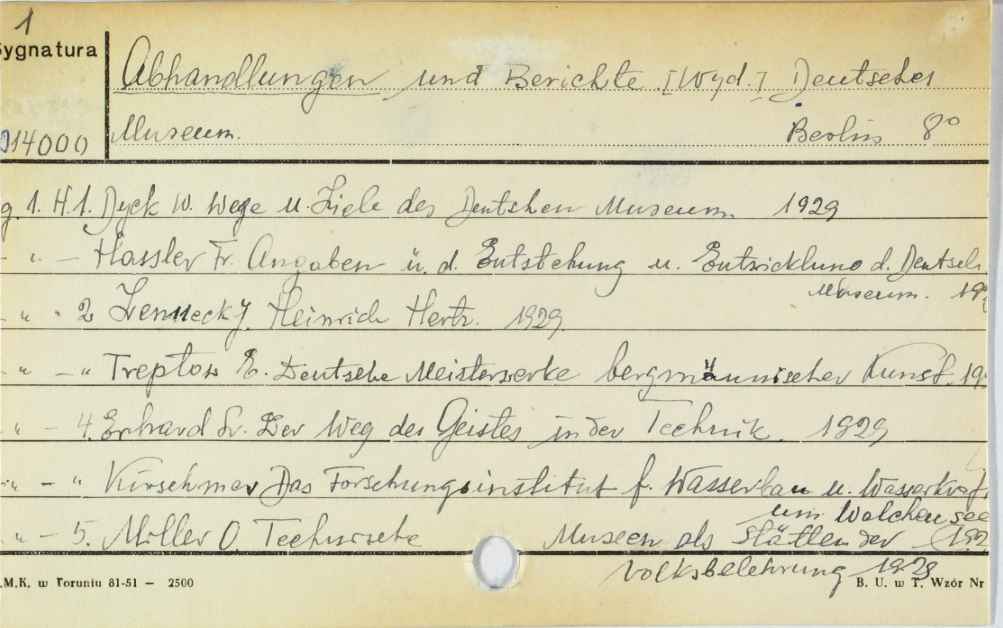 1
Sygnatura
Abhandlungen und Berichte. [Wyd.] Deutsches
014000
Museum. Berlin 8°
g 1. H 1. Dyck W. Wege u. Ziele des Deutschen Museum. 1929
- " - Hassler Fr. Angaben ü. d. Entstehung u. Entwicklung d. Deutsch.
Museum. 19
- " - 2 Zenneck J. Heinrich Hertz. 1929.
- " - " Treptow E. Deutsche Meisterwerke bergmännischer Kunst. 19
" - 4. Erhard L. Der Weg des Geistes in der Technik. 1929
" - " Kirschmer Das Forschungsinstitut f. Wasserbau u. Wasserkraft
um Walchensee
" - 5. Miller O. Technische Museen als Stätten der (192
Volksbelehrung 1929
.M.K. w Toruniu 81-51 — 2500
B. U. w T. Wzór Nr